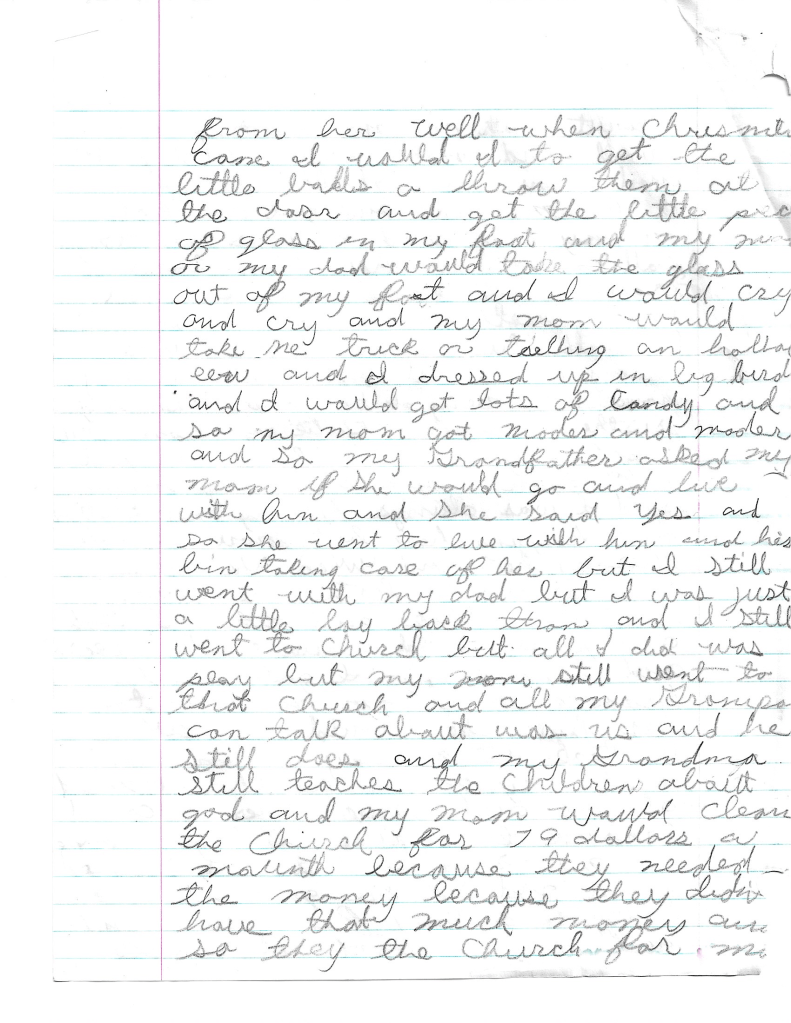 from her well when Chrismt
came I would I to get the
little balls a throw them at
the door and get the little piec
of glass in my foot and my mom
or my dad would take the glass
out of my foot and I would cry
and cry and my mom would
take me trick or an hollo
eew and I dressed up in big bird
and I would get lots of Candy and
so my mom got moder and moder
and so my Grandfather asked my
mom if she would go and live
with him and She Said Yes and
so she went to live with him and his
bin taking care of her but I still
went with my dad but I was just
a little boy back than and I still
went to Church but all I did was
play but my mom still went to
that Church and all my Grampa
can talk about was us and he
still does and my Grandma
still teaches the Children about
god and my mom would clean
the Church for 79 dollars a
mounth because they needed
the money because they didn
have that much money an
so they the Church for m